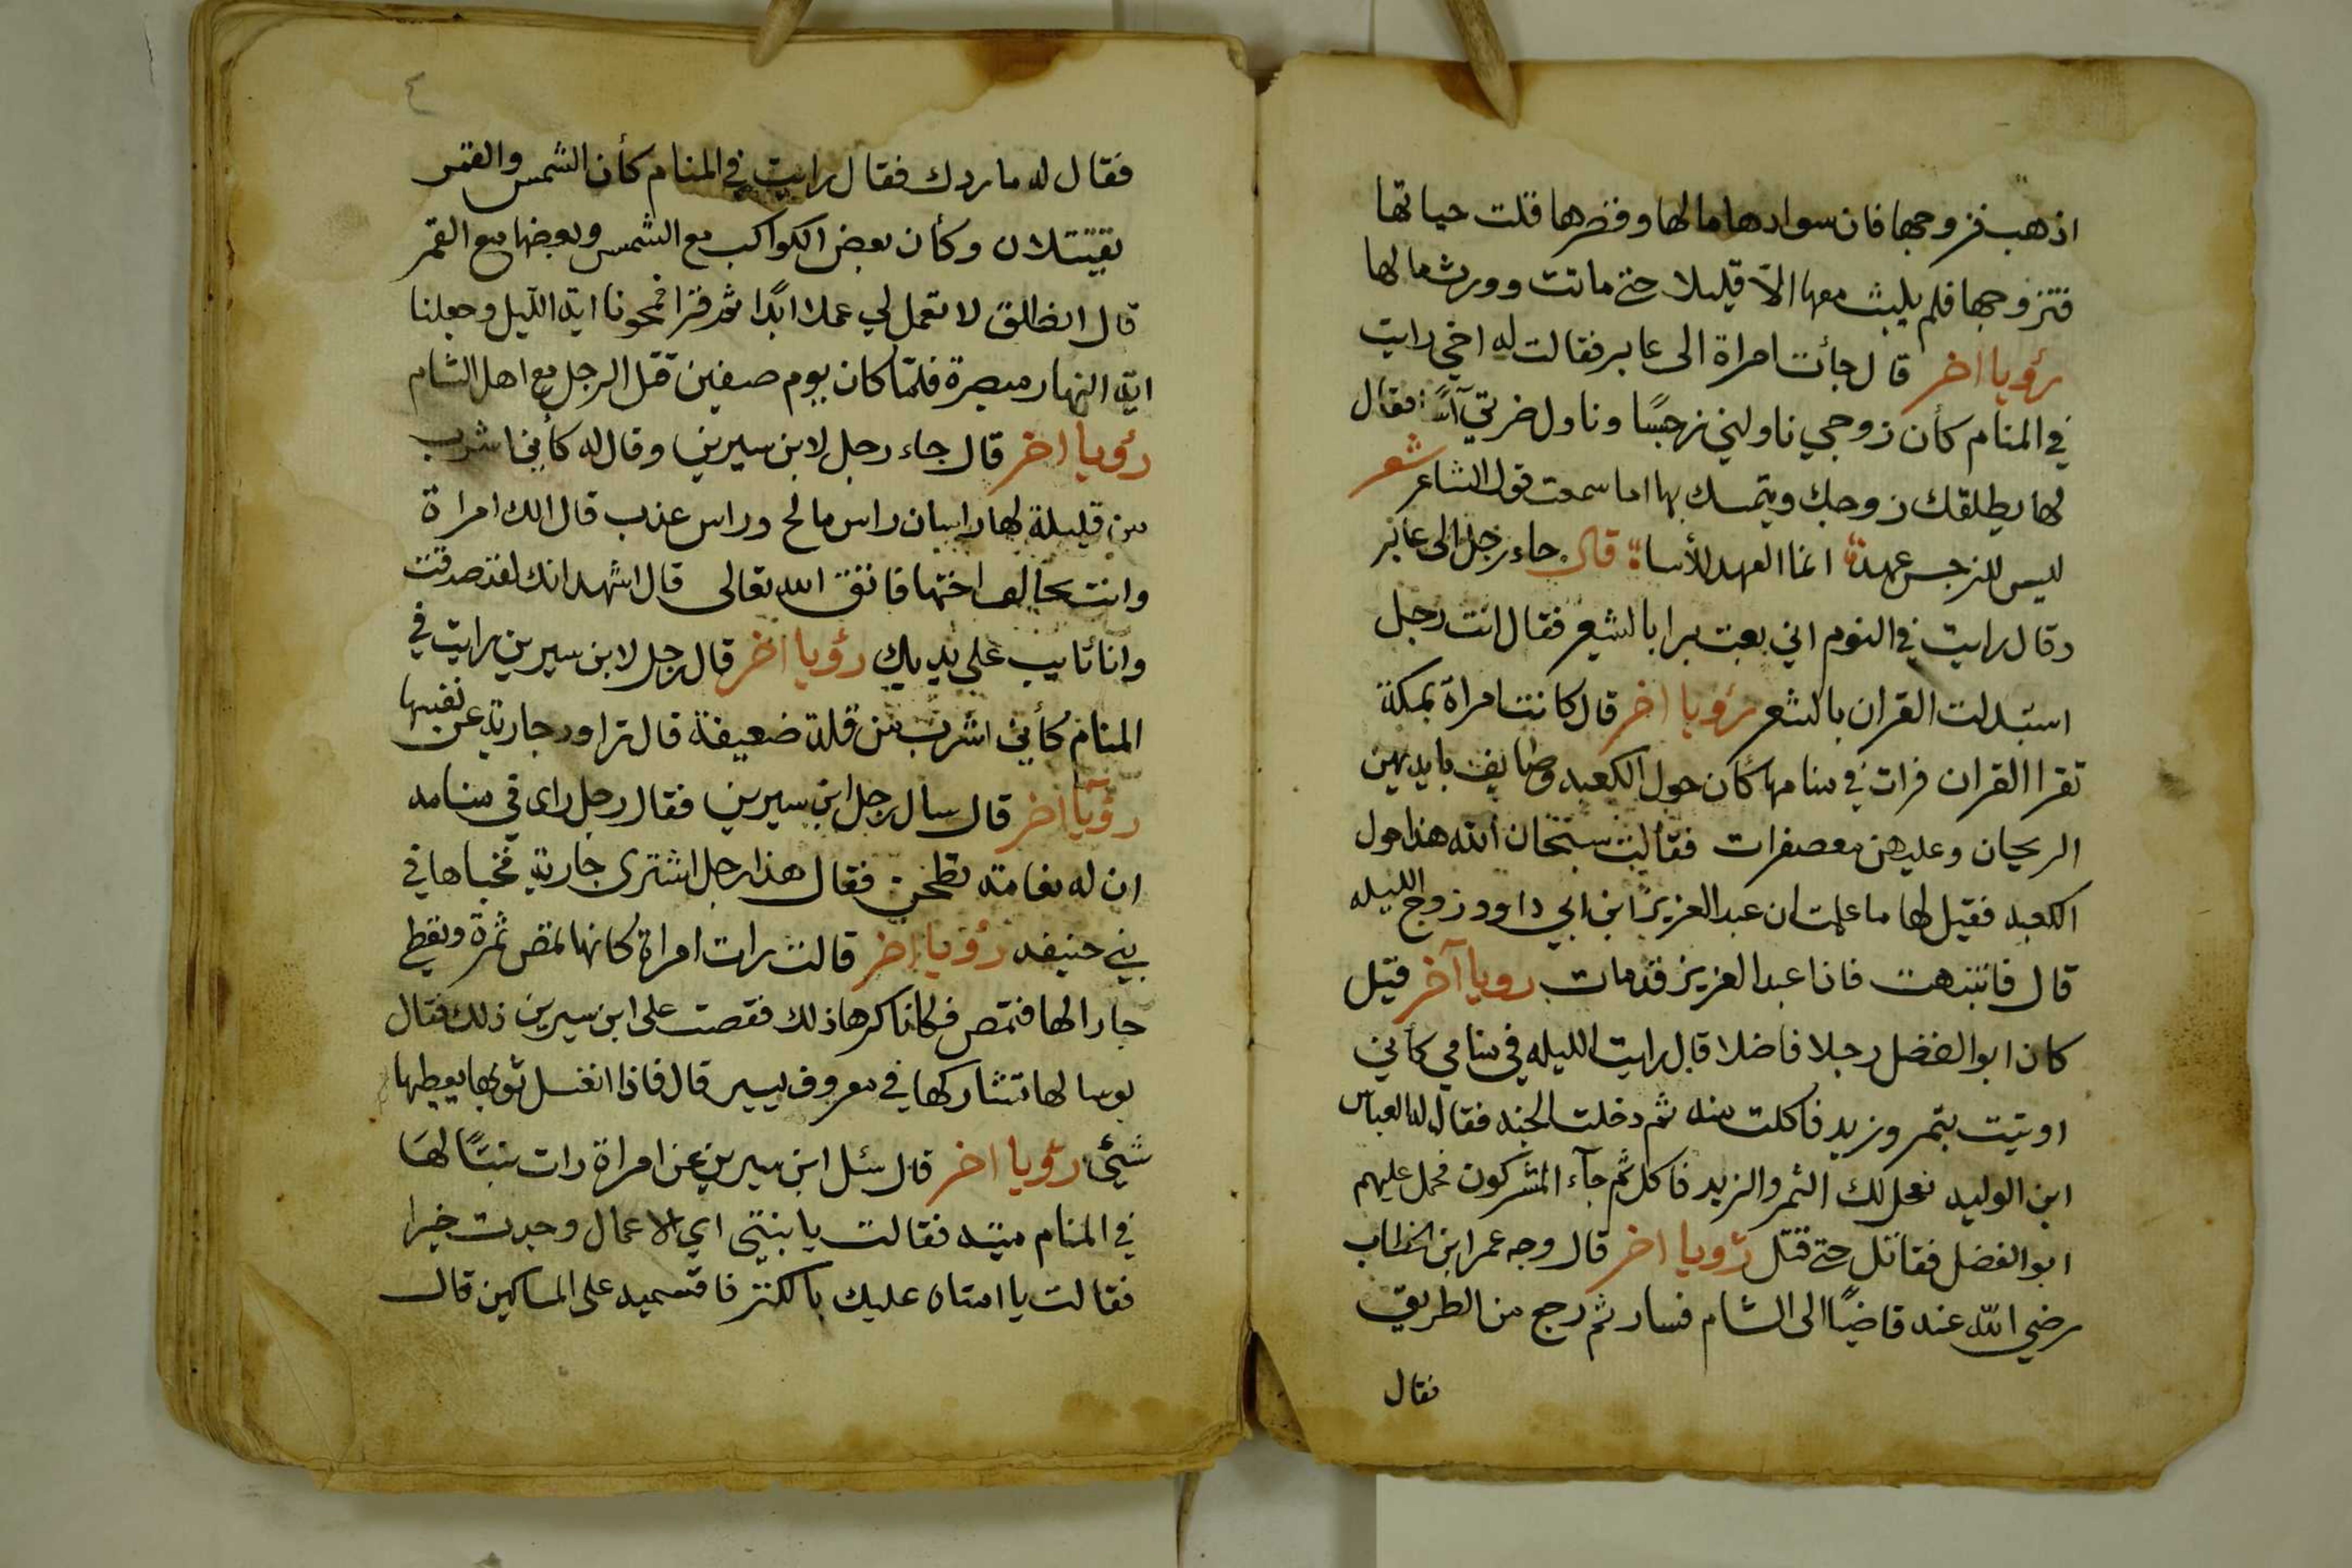 اذهب فزوجها فان سوادها مالها وقصرها قلت حياتها
فتزوجها فلم يلبث معها الاّ قليلا حتى ماتت وورث مالها
رؤيا اخر قال جأت امراة الى عابر فقالت له اخي رايت
في المنام كأن زوجي ناولني نرجسًا وناول ضرتي آسًا فقال
لها يطلقك زوجك ويتمسك بها اما سمعت قول الشاعر شعر
ليس للنرجس عهد انما العهد للأسا قال جاء رجل الى عابر
وقال رايت في النوم اني بعت برا بالشعير فقال انت رجل
استبدلت القران بالشعر رؤيا اخر قال كانت امراة بمكة
تقرا القران فرات في منامها كأن حول الكعبه وصايف بايديهن
الريحان وعليهن معصفرات فقالت سبحان الله هذا حول
الكعبه فقيل لها ما علمت ان عبد العزيز ابن ابي داود زوج الليله
قال فانتبهت فاذا عبد العزيز قد مات رويا آخر قيل
كان ابو الفضل رجلا فاضلا قال رايت الليله في منامي كأني
اوتيت بتمر وزبد فاكلت منه ثم دخلت الجنه فقال له العباس
ابن الوليد نعجل لك التمر والزبد فاكل ثم جآء المشركون فحمل عليهم
ابو الفضل فقاتل حتى قتل رؤيا اخر قال وجه عمر ابن الخطاب
رضي الله عنه قاضيًا الى الشام فسار ثم رجع من الطريق
فقال
٤
فقال له ما ردك فقال رايت في المنام كأن الشمس والقمر
يقتتلان وكأن بعض الكواكب مع الشمس وبعضها مع القمر
قال انطلق لا تعمل لي عملا ابدًا ثم قرا فمحونا اية الليل وجعلنا
اية النهار مبصرة فلمّا كان يوم صفين قتل الرجل مع اهل الشام
رؤيا اخر قال جاء رجل لابن سيرين وقال له كأني اشرب
من قليلة لها راسان راس مالح وراس عذب قال الك امراة
وانت تخالف اختها فاتق الله تعالى قال اشهد انك لقد صدقت
وانا تايب على يديك رؤيا اخر قال رجل لابن سيرين رايت في
المنام كأني اشرب من قلة ضعيفة قال تراود جارية عن نفسها
رؤيا اخر قال سال رجل ابن سيرين فقال رجل راى في منامه
ان له نعامة تطحن فقال هذا رجل اشترى جارية فخباها في
بني حنيفه رؤيا اخر قالت رات امراة كانها تمص ثمرة وتعطي
جارا لها فتمص فكانا كرها ذلك فقصت على ابن سيرين ذلك فقال
لها تشاركها في معروف يسير قال فاذا انغسل ثوبها يعطيها
شئي رؤيا اخر قال سئل ابن سيرين عن امراة رات بنتًا لها
في المنام ميته فقالت يا بنيتي اي الاعمال وجدت خيرا
فقالت يا امتاه عليك بالكنز فاقسميه على المساكين قال